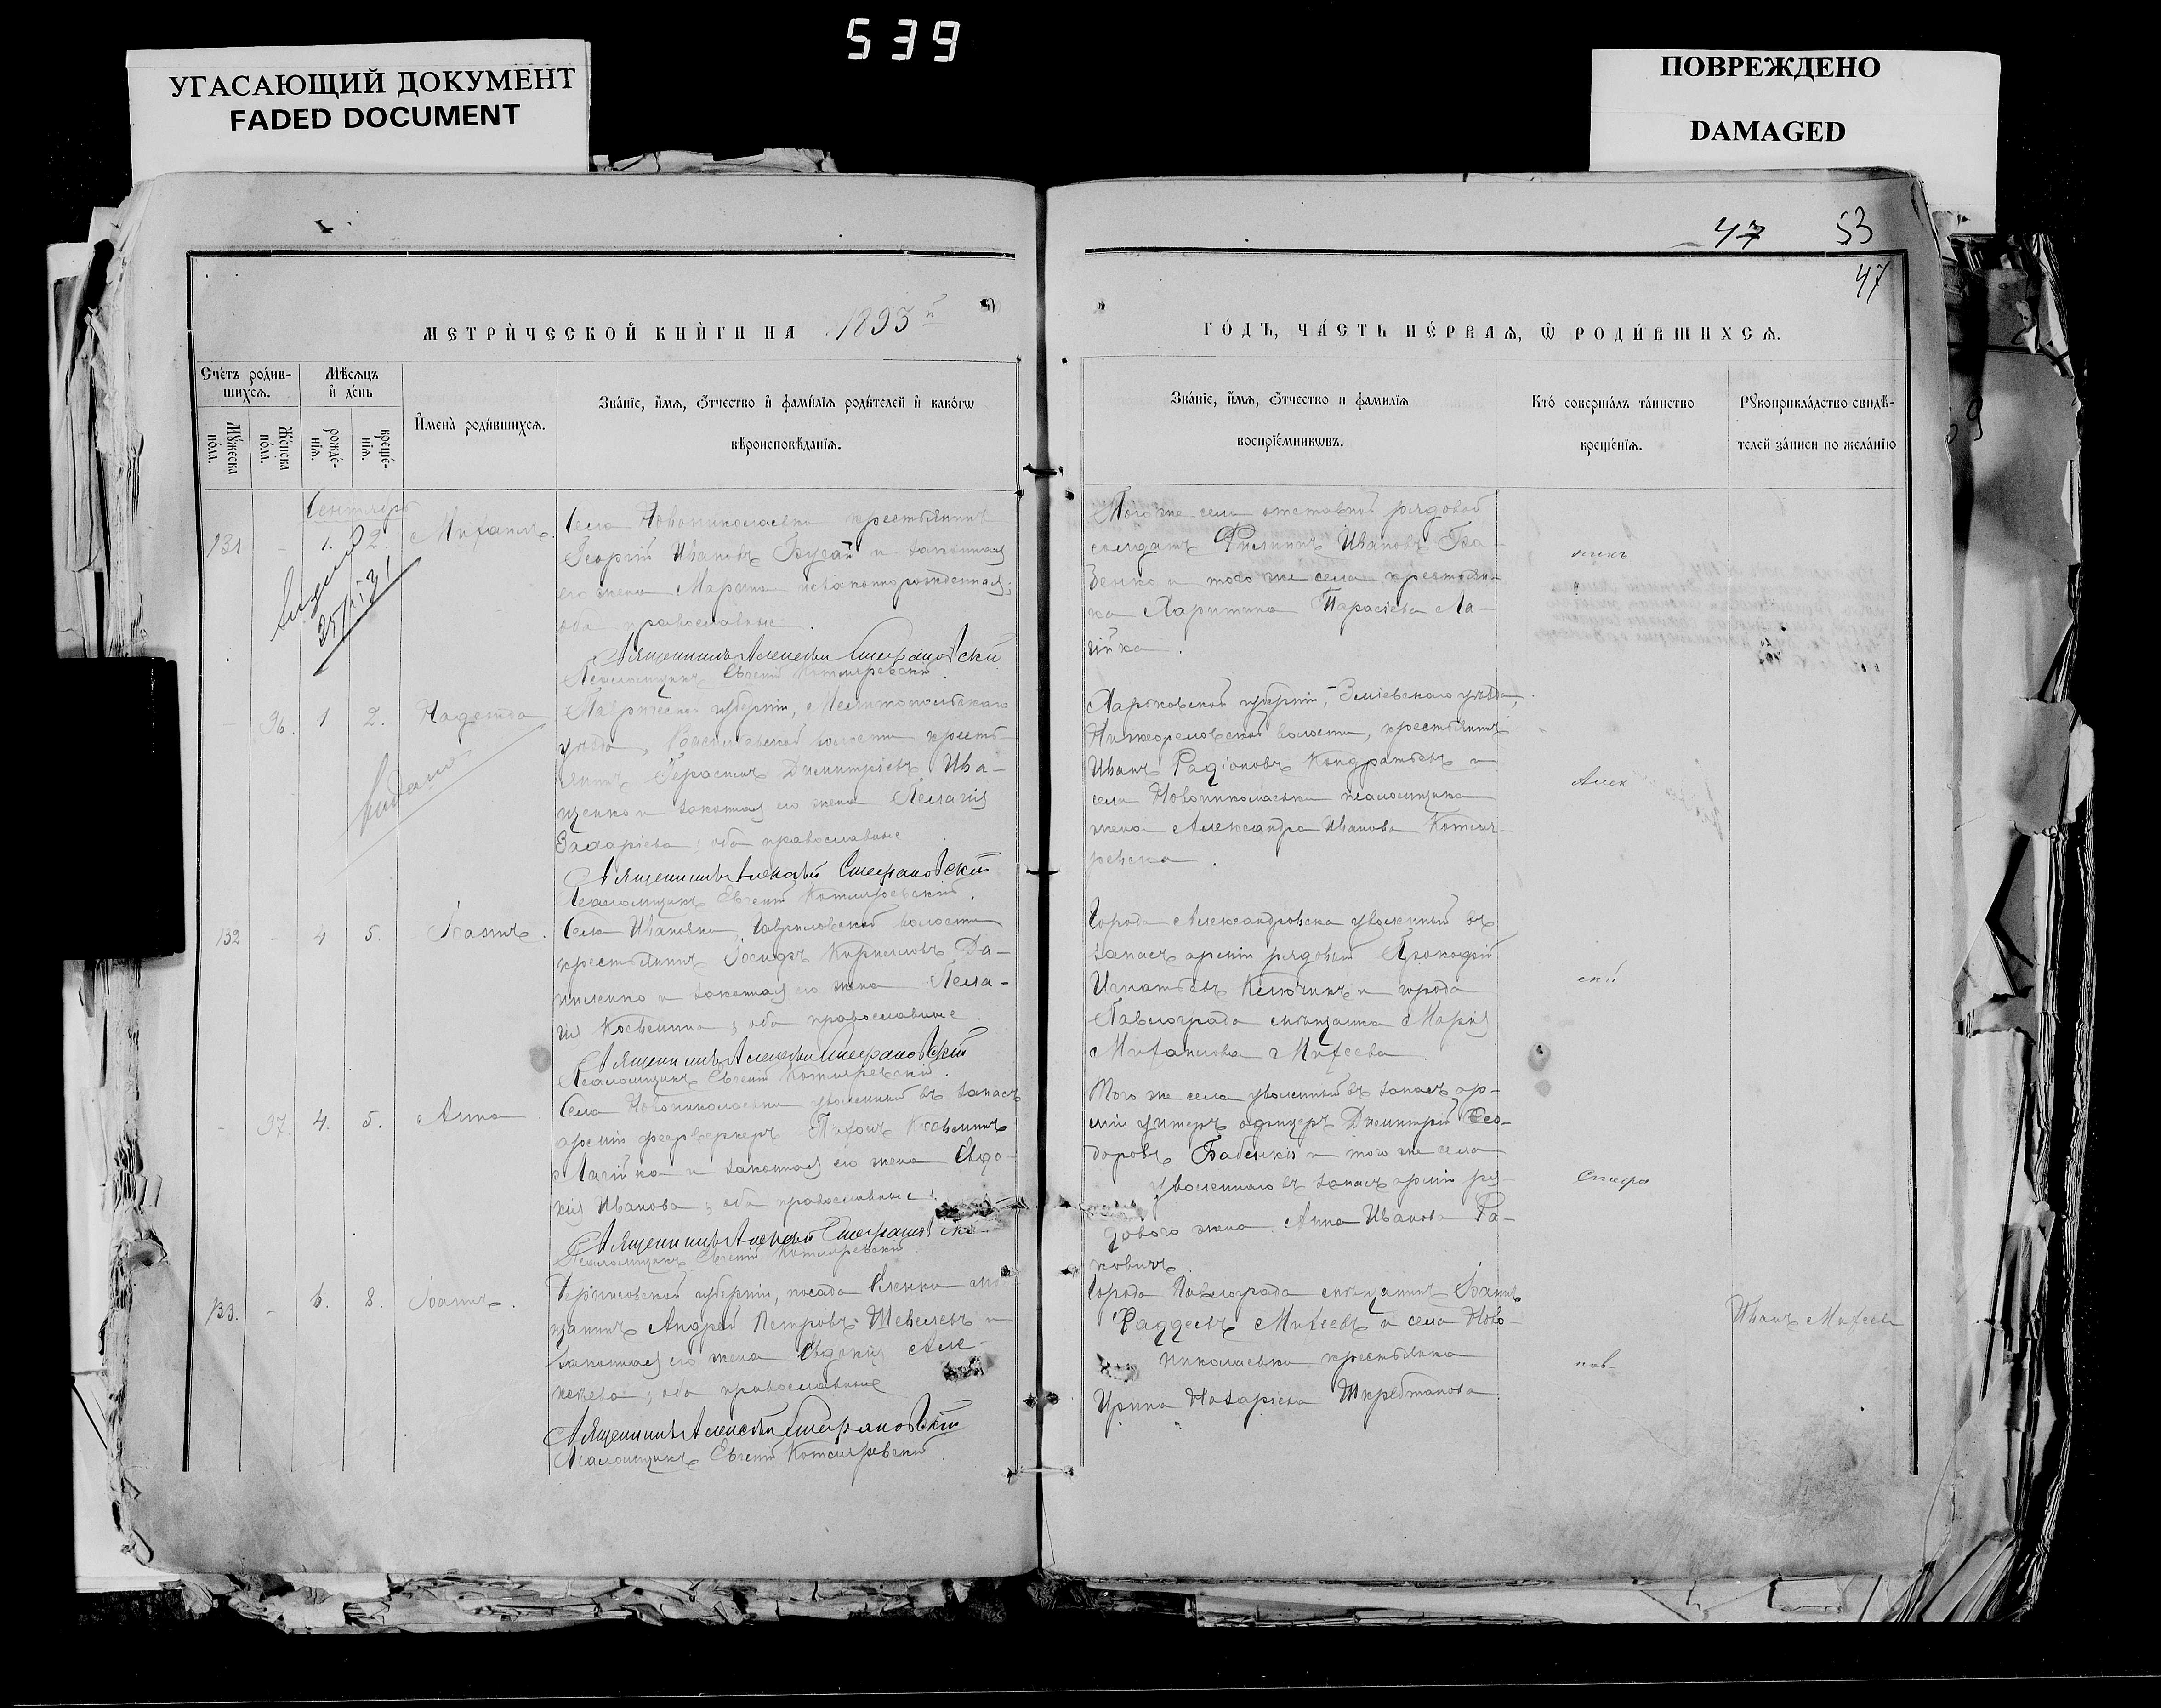 539
УГАСАЮЩИЙ ДОКУМЕНТ
FADED DOCUMENT
ПОВРЕЖДЕНО
DAMAGED
47 53
47
МЕТРИ́ЧЕСКОЙ КНИ́ГИ НА 1893й
ГО́ДЪ, ЧА́СТЬ ПЕ́РВАЯ, Ѡ РОДИ́ВШИХСѦ.
Сче́тъ роди́в-
шихсѧ.
Мꙋжеска по́ла.
Же́нска по́ла.
Мѣсѧцъ и де́нь
рожде́-
нїѧ.
креще́-
нїѧ.
Имена̀ роди́вшихсѧ.
Зва́нїе, и́мѧ, ѻтчество и фами́лїѧ роди́телей и како́гѡ
вѣроисповѣ́данїѧ.
Зва́нїе, и́мѧ, ѻтчество и фамилїѧ
воспрїе́мникѡвъ.
Кто́ соверша́лъ та́инство
креще́нїѧ.
Рꙋкоприкла́дство свидѣ́-
телей за́писи по жела́нїю
Сентябрь
131 - 1. 2. Михаилъ.
Села Новониколаевки крестьянинъ
Георгій Ивановъ Бугай и законная
его жена Марина незаконнорожденная;
оба православные.
Священникъ Алексѣй Стефановскій
Псаломщикъ Евгеній Котляревскій.
Того же села отставной рядовой
солдатъ Филиппъ Ивановъ
и того же села крестьян-
ка Харитина Тарасіева Ла-
гійка.
25/I 31
- 96. 1 2. Надежда
Таврической губерніи, Мелитопольскаго
уѣзда, Васильевской волости кресть-
янинъ Герасимъ Димитріевъ Ива-
щенко и законная его жена Пелагія
Захаріева; оба православные
Священникъ Алексѣй Стефановскій
Псаломщикъ Евгеній Котляревскій.
Харьковской губерніи, Зміевскаго уѣзда,
Нижеореловской волости, крестьянинъ
Иванъ Радіоновъ Кондратьевъ и
села Новониколаевки псаломщика
жена Александра Иванова Котля-
ревска.
Алек
Выдано
132 - 4 5. Іоаннъ.
Села Ивановки, Гавриловской волости
крестьянинъ Іосифъ Кирилловъ Да-
ниленко и законная его жена Пела-
гія Косьмина; оба православные.
Священникъ Алексѣй Стефановскій
Псаломщикъ Евгеній Котляревскій.
Города Александровска уволенный въ
запасъ арміи рядовый Прокофій
Игнатьевъ и города
Павлограда мѣщанка Марія
Михаилова Михеева.
скій
- 97. 4. 5. Анна
Села Новониколаевки уволенный въ запасъ
арміи фейерверкеръ Тихонъ Косьминъ
Лагійка и законная его жена Евдо-
кія Иванова; оба православные.
Священникъ Алексѣй Стефановскій
Псаломщикъ Евгеній Котляревскій.
Того же села уволенный въ запасъ ар-
міи унтеръ офицеръ Димитрій Ѳео-
доровъ Бабенко и того же села
уволеннаго въ запасъ арміи ря-
дового жена Анна Иванова Ра-
ковичъ.
Стефа
133. - 6. 8. Іоаннъ.
Черниговской губерніи, посада Еленки мѣ-
щанинъ Андрей Петровъ Шевелевъ и
законная его жена Евдокія Але-
ксеева; оба православные
Священникъ Алексѣй Стефановскій
Псаломщикъ Евгеній Котляревскій
Города Павлограда мѣщанинъ Іоаннъ
Фаддеевъ Михеевъ и села Ново-
николаевки крестьянка
Ирина Назаріева
нов-
Иванъ Михеевъ